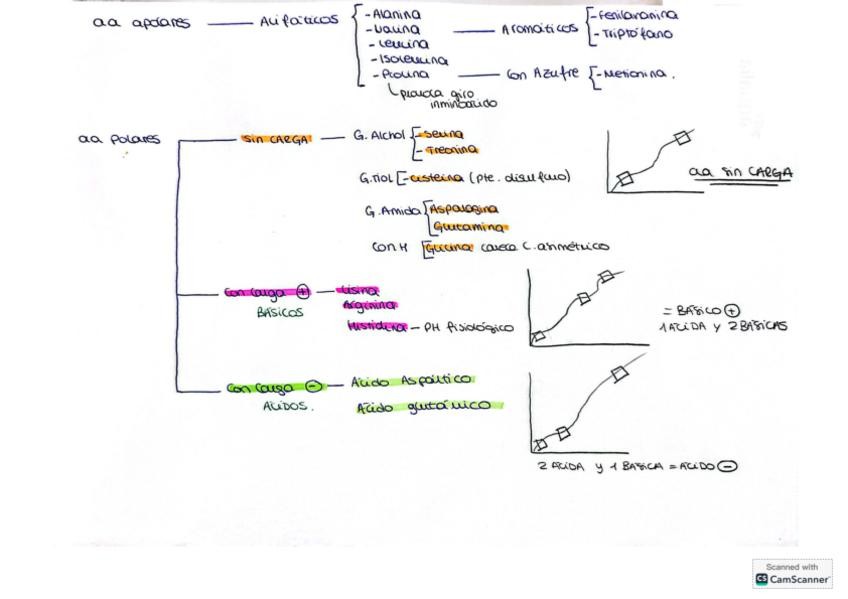 aa apolares — Alifáticos
- Alanina
- Valina
- Leucina
- Isoleucina
- Prolina
provoca giro
Aromáticos
- Fenilalanina
- Triptófano
Con Azufre - Metionina.
aa Polares
sin CARGA — G. Alchol
- Serina
- Treonina
G. Tiol - cisteina (Pte. disulfuro)
G. Amida
Glutamina
CON H Glicina carece C. asimétrico
aa sin CARGA
Con Carga +
BÁSICOS
Lisina
Arginina
Histidina - PH fisiológico
= BÁSICO +
1 ACIDA Y 2 BÁSICAS
Con Carga -
ACIDOS.
Ácido Aspártico
Ácido glutámico
2 ACIDA y 1 BASICA = ACIDO -
Scanned with
CS CamScanner